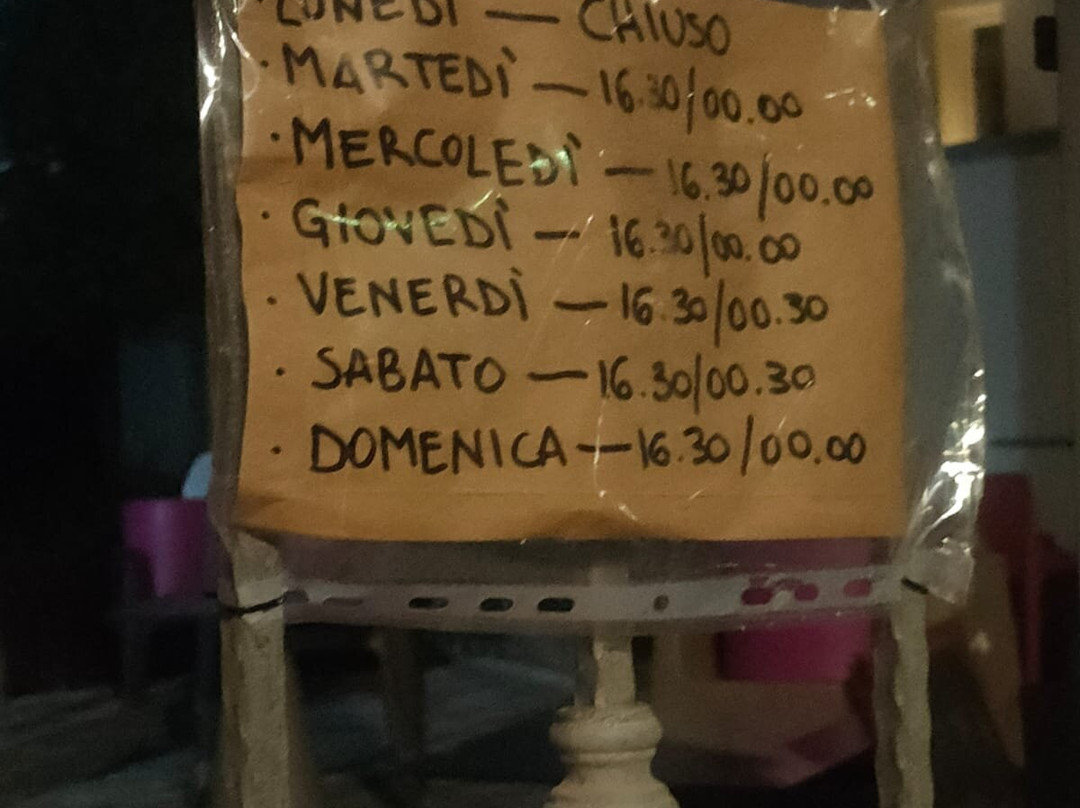 · LUNEDÌ — CHIUSO
· MARTEDÌ — 16.30/00.00
· MERCOLEDÌ — 16.30/00.00
· GIOVEDÌ — 16.30/00.00
· VENERDÌ — 16.30/00.30
· SABATO — 16.30/00.30
· DOMENICA — 16.30/00.00